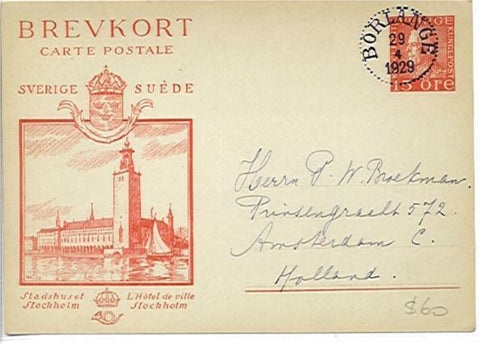 BREVKORT
CARTE POSTALE
SVERIGE SUÈDE
BORLÄNGE
29
4
1929
15 ÖRE
Herrn P. W. Broekman.
Prinsengracht 572.
Amsterdam C.
Holland.
Stadshuset L'Hôtel de ville
Stockholm Stockholm
$60